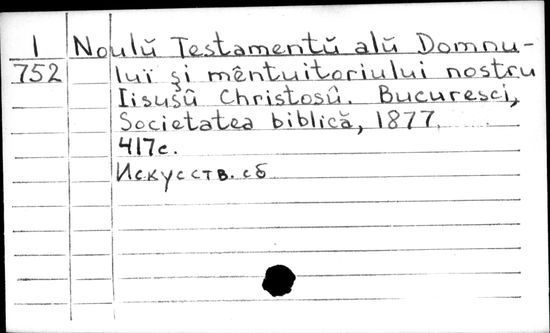 I Noulŭ Testamentŭ alŭ Domnu-
752 lui şi mêntuitoriului nostru
Iisusû Christosû. Bucuresci,
Societatea biblică, 1877.
417c.
Искусств. сб